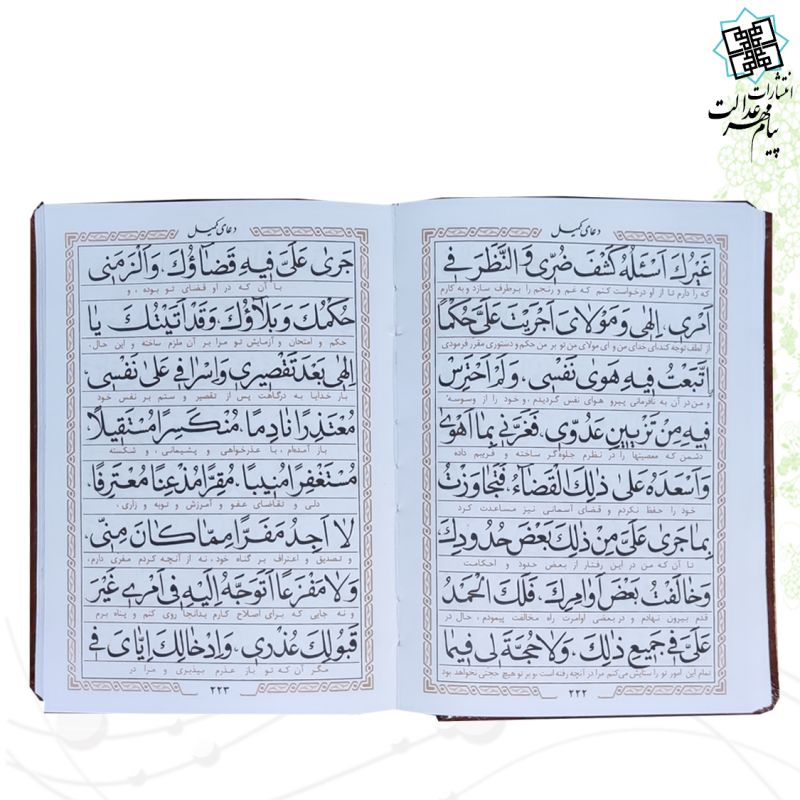 انتشارات
پیام مهر عدالت
دعای کمیل
غَيْرُكَ اَسْئَلُهُ كَشْفَ ضُرّى وَالنَّظَرَ فى
که را دارم تا از او درخواست کنم که غم و رنجم را برطرف سازد و به کارم
اَمْرى، اِلهى وَ مَوْلاىَ اَجْرَيْتَ عَلَىَّ حُكْمًا
از لطف توجه کند ای خدای من و ای مولای من تو بر من حکم و دستوری مقرر فرمودی
اِتَّبَعْتُ فيهِ هَوى نَفْسى، وَلَمْ اَحْتَرِسْ
و من در آن به نافرمانی پیرو هوای نفس گردیدم و خود را از وسوسه
فيهِ مِنْ تَزْيينِ عَدُوّى، فَغَرَّنى بِما اَهْوى
دشمن که معصیتها را در نظرم جلوه‌گر ساخته و فریبم داده
وَاَسْعَدَهُ عَلى ذلِكَ الْقَضآءُ، فَتَجاوَزْتُ
خود را حفظ نکردم و قضای آسمانی نیز مساعدت کرد
بِما جَرى عَلَىَّ مِنْ ذلِكَ بَعْضَ حُدُودِكَ
تا آن که من در این رفتار از بعض حدود و احکامت
وَخالَفْتُ بَعْضَ اَوامِرِكَ، فَلَكَ الْحَمْدُ
قدم بیرون نهادم و در بعضی اوامرت راه مخالفت پیمودم، حال در
عَلَىَّ فى جَميعِ ذلِكَ، وَلا حُجَّةَ لى فيما
تمام این امور تو را ستایش می‌کنم مرا در آنچه رفته است، و بر تو هیچ حجتی نخواهد بود
۲۲۲
دعای کمیل
جَرى عَلَىَّ فيهِ قَضآؤُكَ، وَاَلْزَمَنى
با آن که در او قضای تو بوده، و
حُكْمُكَ وَ بَلآؤُكَ، وَقَدْ اَتَيْتُكَ يا
حکم و امتحان و آزمایش تو مرا بر آن ملزم ساخته و این حال،
اِلهى بَعْدَ تَقْصيرى وَاِسْرافى عَلى نَفْسى
بار خدایا به درگاهت پس از تقصیر و ستم بر نفس خود
مُعْتَذِرًا نادِمًا، مُنْكَسِرًا مُسْتَقيلًا،
باز آمده‌ام، با عذرخواهی و پشیمانی، و شکسته
مُسْتَغْفِرًا مُنيبًا، مُقِرًّا مُذْعِنًا مُعْتَرِفًا،
دلی و تقاضای عفو و آمرزش و توبه و زاری،
لا اَجِدُ مَفَرًّا مِمّا كانَ مِنّى،
و تصدیق و اعتراف بر گناه خود، نه از آنچه کردم مفری دارم،
وَلا مَفْزَعًا اَتَوَجَّهُ اِلَيْهِ فى اَمْرى غَيْرَ
و نه جایی که برای اصلاح کارم بدانجا روی کنم و پناه برم
قَبُولِكَ عُذْرى، وَاِدْخالِكَ اِيّاىَ فى
مگر آن که تو باز عذرم بپذیری و مرا در
۲۲۳